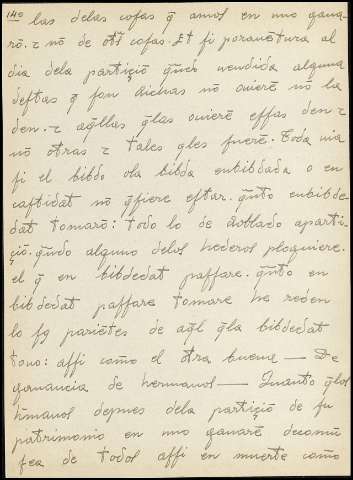 140 las delas cosas q̃ amos en uno gana-
rõ. z nõ de otr̃ cosas. Et si porauẽtura al
dia dela partiçiõ q̃ndo uendida alguna
destas q̃ son dichas nõ ouierẽ nõ la
den. z aq̃llas q̃las ouierẽ essas den. z
nõ otras z tales q̃les fuerẽ. Toda uia
si el bibdo ola bibda enbibdada o en
castidat nõ q̃siere estar. q̃nto enbibde-
dat tomarõ: todo lo de doblado aparti-
çiõ. q̃ndo alguno delos hederos ploguiere.
el q̃ en bibdedat passare. q̃nto en
bibdedat passare tomare he reden
lo sq̃ pariẽtes de aq̃l q̃la bibdedat
touo: assi como el otra buena — De
ganancia de hermanos — Quanto q̃los
hm̃anos depues dela partiçiõ de su
patrimonio en uno ganarẽ decomũ
sea de todos assi en muerte como